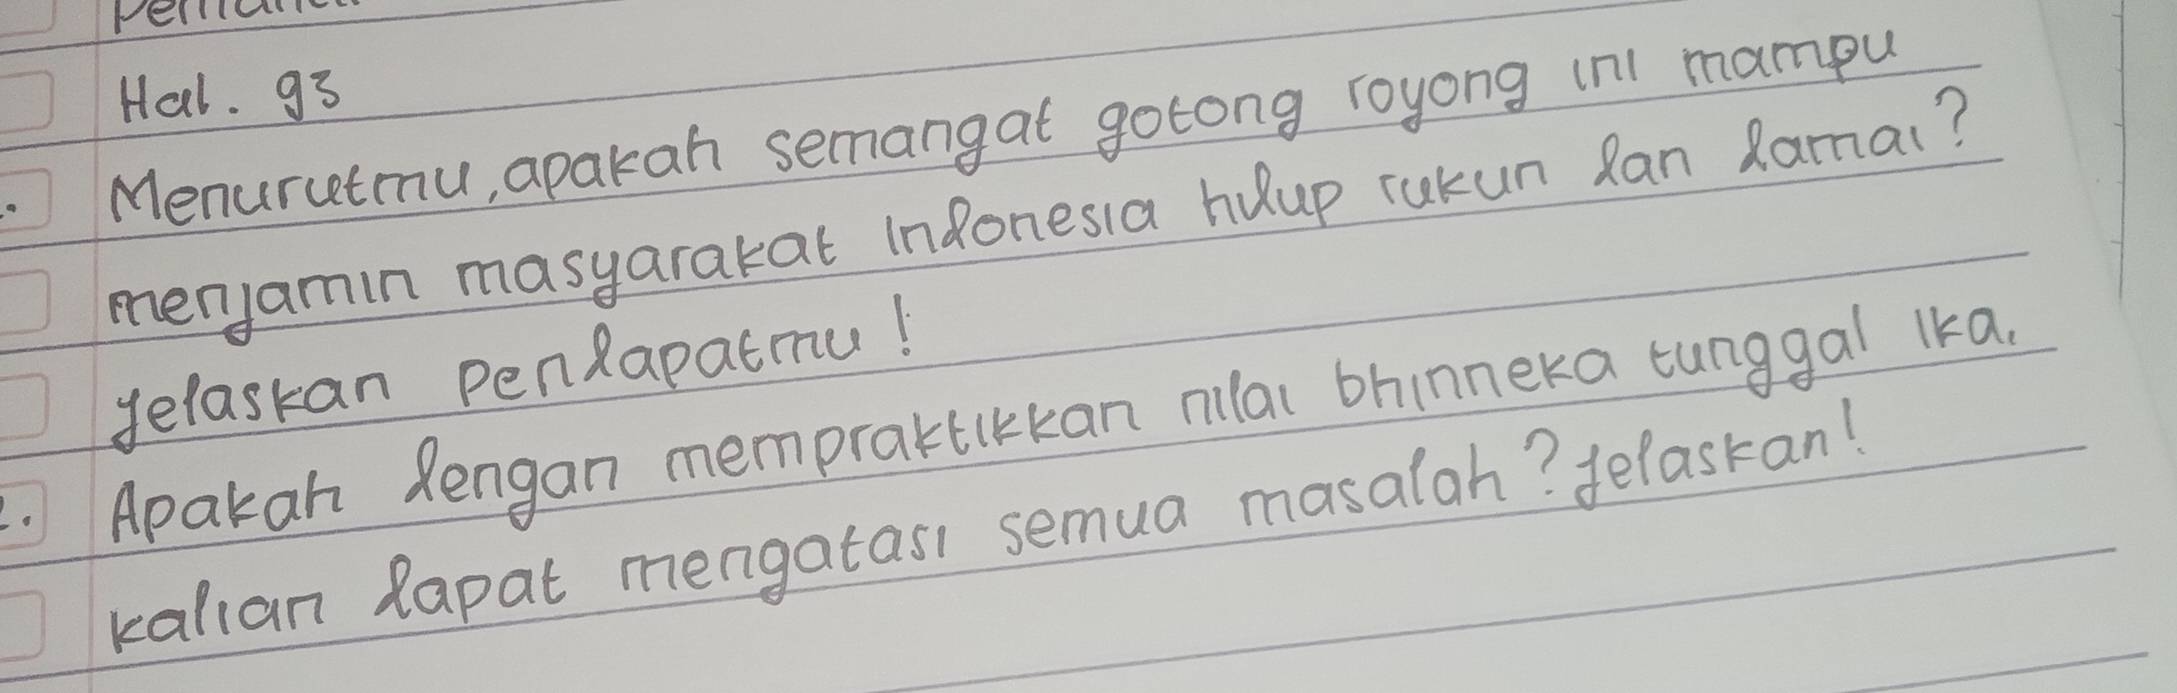 Hal. 93
Menurutmu, apakah semangat gotong royong ini mampu
menjamin masyarakat Indonesia hidup rukun dan damai?
jelaskan pendapatmu!
2. Apakah dengan mempraktikkan nilai bhinneka tunggal ika.
kalian dapat mengatasi semua masalah? jelaskan!